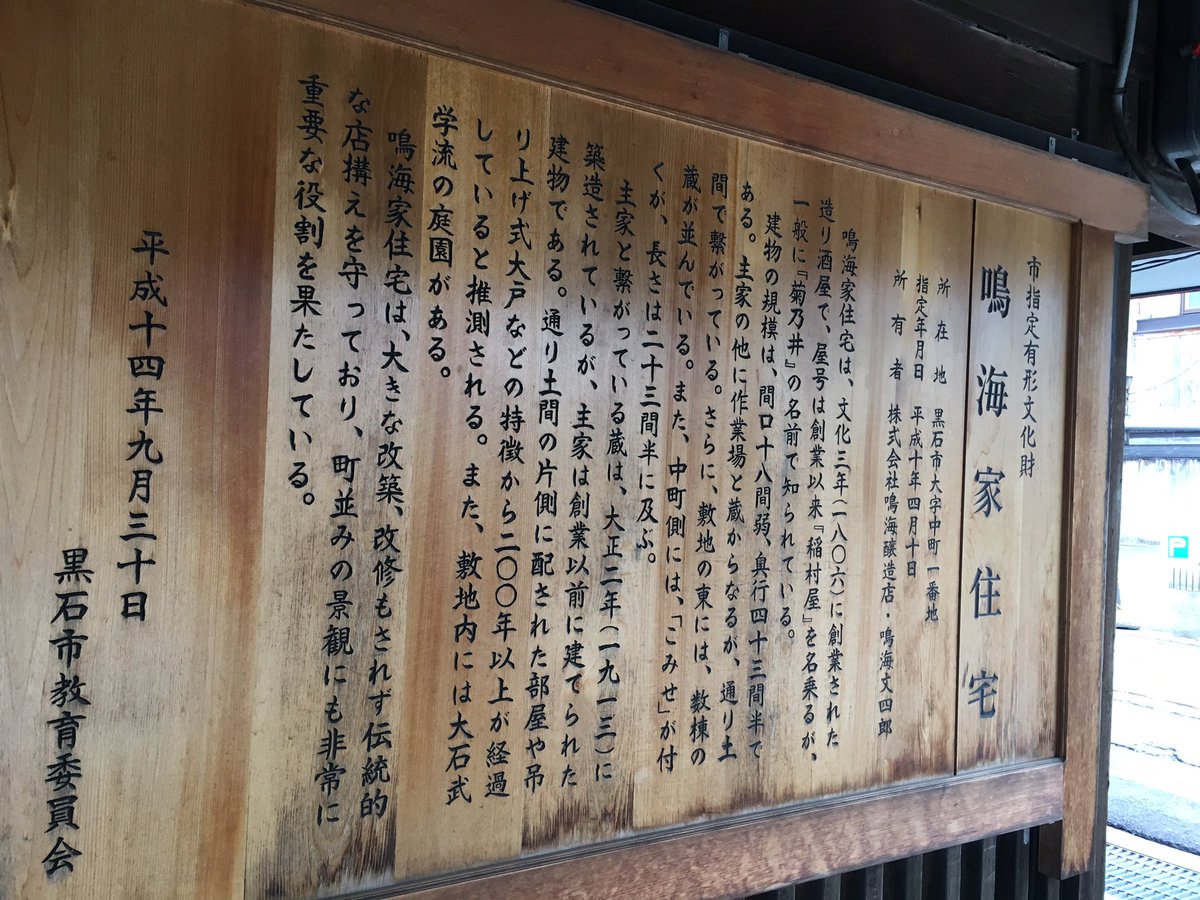 市指定有形文化財
鳴海家住宅
所在地 黒石市大字中町一番地
指定年月日 平成十年四月十日
所有者 株式会社鳴海醸造店・鳴海文四郎
鳴海家住宅は、文化三年(一八〇六)に創業された
造り酒屋で、屋号は創業以来『稲村屋』を名乗るが、
一般に『菊乃井』の名前で知られている。
建物の規模は、間口十八間弱、奥行四十三間半で
ある。主家の他に作業場と蔵からなるが、通り土
間で繋がっている。さらに、敷地の東には、数棟の
蔵が並んでいる。また、中町側には、「こみせ」が付
くが、長さは二十三間半に及ぶ。
主家と繋がっている蔵は、大正二年(一九一三)に
築造されているが、主家は創業以前に建てられた
建物である。通り土間の片側に配された部屋や吊
り上げ式大戸などの特徴から二〇〇年以上が経過
していると推測される。また、敷地内には大石武
学流の庭園がある。
鳴海家住宅は、大きな改築、改修もされず伝統的
な店構えを守っており、町並みの景観にも非常に
重要な役割を果たしている。
平成十四年九月三十日
黒石市教育委員会
P